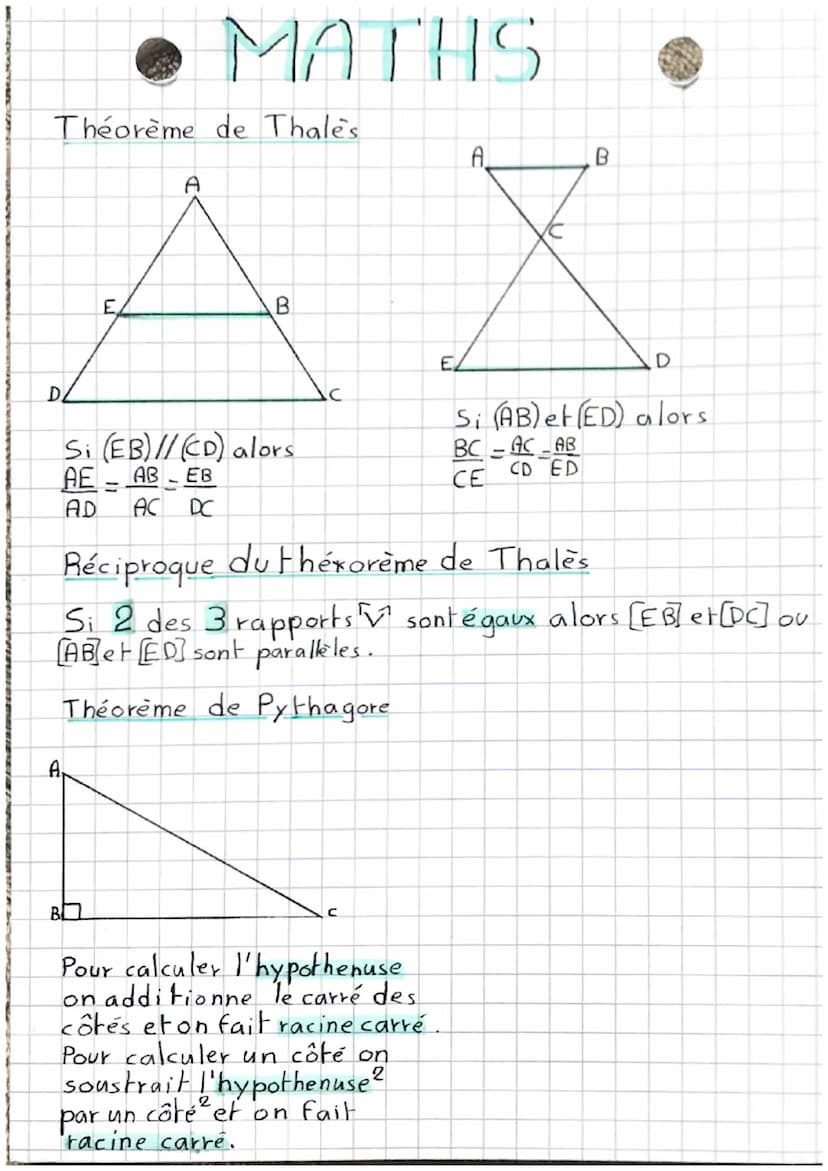 MATHS
Théorème de Thalès
A
E B
D C
Si (EB)//(CD) alors
AE = AB = EB
AD AC DC
A B
C
E D
Si (AB) et (ED) alors
BC = AC = AB
CE CD ED
Réciproque du théxorème de Thalès
Si 2 des 3 rapports sont égaux alors [EB] et [DC] ou
[AB] et [ED] sont parallèles.
Théorème de Pythagore
A
B C
Pour calculer l'hypothenuse
on additionne le carré des
côtés et on fait racine carré.
Pour calculer un côté on
soustrait l'hypothenuse²
par un côté² et on fait
racine carré.